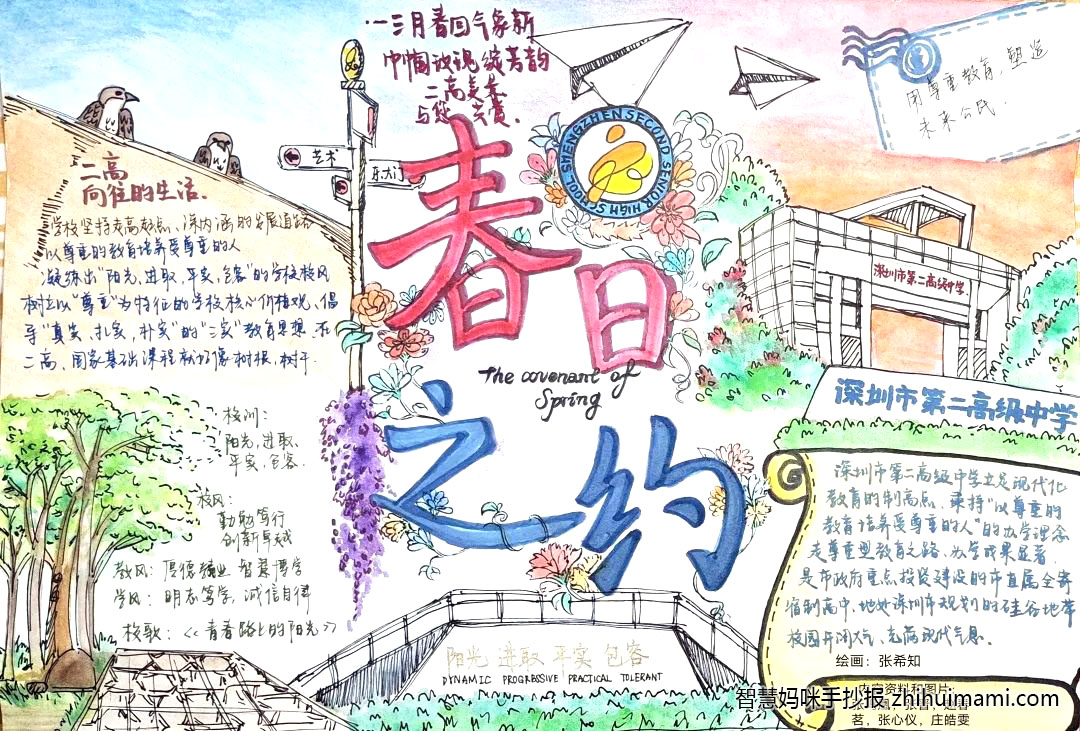 一三月春回气象新
巾帼玫瑰绽芳韵
二高美术
与您共赏.
用尊重教育,塑造
未来公民.
SHENGZHEN SECOND SENIOR HIGH SCHOOL
艺术
东大门
二高
向往的生活.
学校坚持走高效点、深内涵的发展道路
以尊重的教育培养受尊重的人
凝练出"阳光,进取,平实,包容"的学校校风
树立以"尊重"为特征的学校核心价值观,倡
导"真实,扎实,朴实"的"三实"教育思想.在
二高,国家基础课程就好像树根,树干.
春日
The covenant of
Spring
之约
深圳市第二高级中学
深圳市第二高级中学
校训:
阳光,进取、
平实,包容.
校风:
勤勉笃行
创新卓越
教风:厚德精业 智慧博学
学风:明志笃学,诚信自律
校歌:<<青春路上的阳光>>
深圳市第二高级中学立足现代化
教育的制高点,秉持"以尊重的
教育培养受尊重的人"的办学理念
走尊重型教育之路,办学成果显著.
是市政府重点投资建设的市直属全寄
宿制高中,地处深圳市规划的硅谷地带
校园开阔大气,充满现代气息.
绘画:张希知
内容资料和图片:
茗,张心仪,庄皓雯
阳光 进取 平实 包容
DYNAMIC PROGRESSIVE PRACTICAL TOLERANT
智慧妈咪手抄报 zhihuimami.com